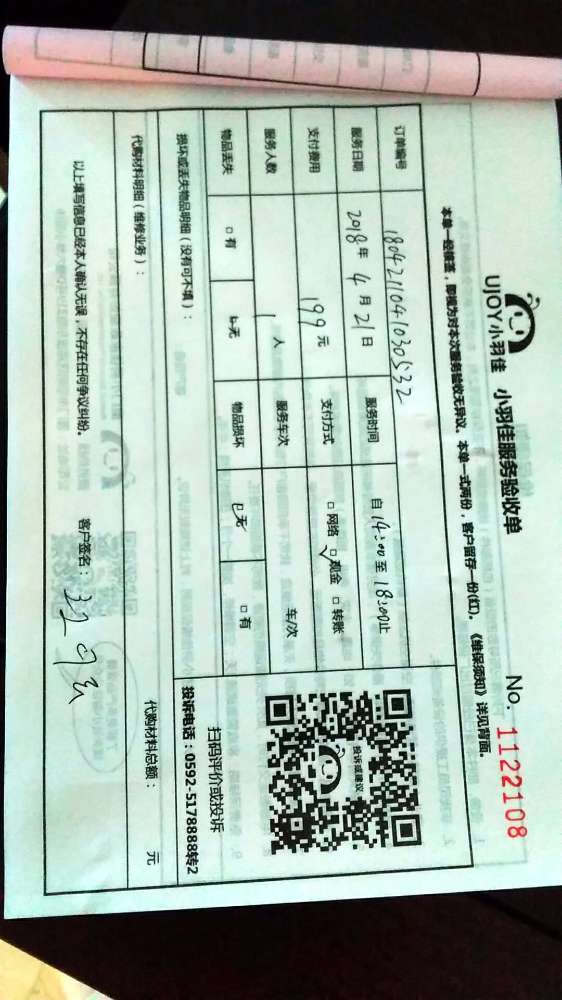 UJOY小羽佳 小羽佳服务验收单 No. 1122108
本单一经接签，即视为对本次服务验收无异议，本单一式两份，客户留存一份(红)。《维保须知》详见背面。
订单编号 180421104103053​2
服务日期 2018年4月21日 服务时间 自14:00至18:00止
支付费用 199元 支付方式 □网络 □现金 □转账
服务人数 1人 服务车次 车/次
物品丢失 □有 □无 物品损坏 □无 □有
投诉或建议
扫码评价或投诉
投诉电话：0592-5178888转2
损坏或丢失物品明细（没有可不填）：
代购材料明细（维修业务）： 代购材料总额： 元
以上填写信息已经本人确认无误，不存在任何争议纠纷。 客户签名：